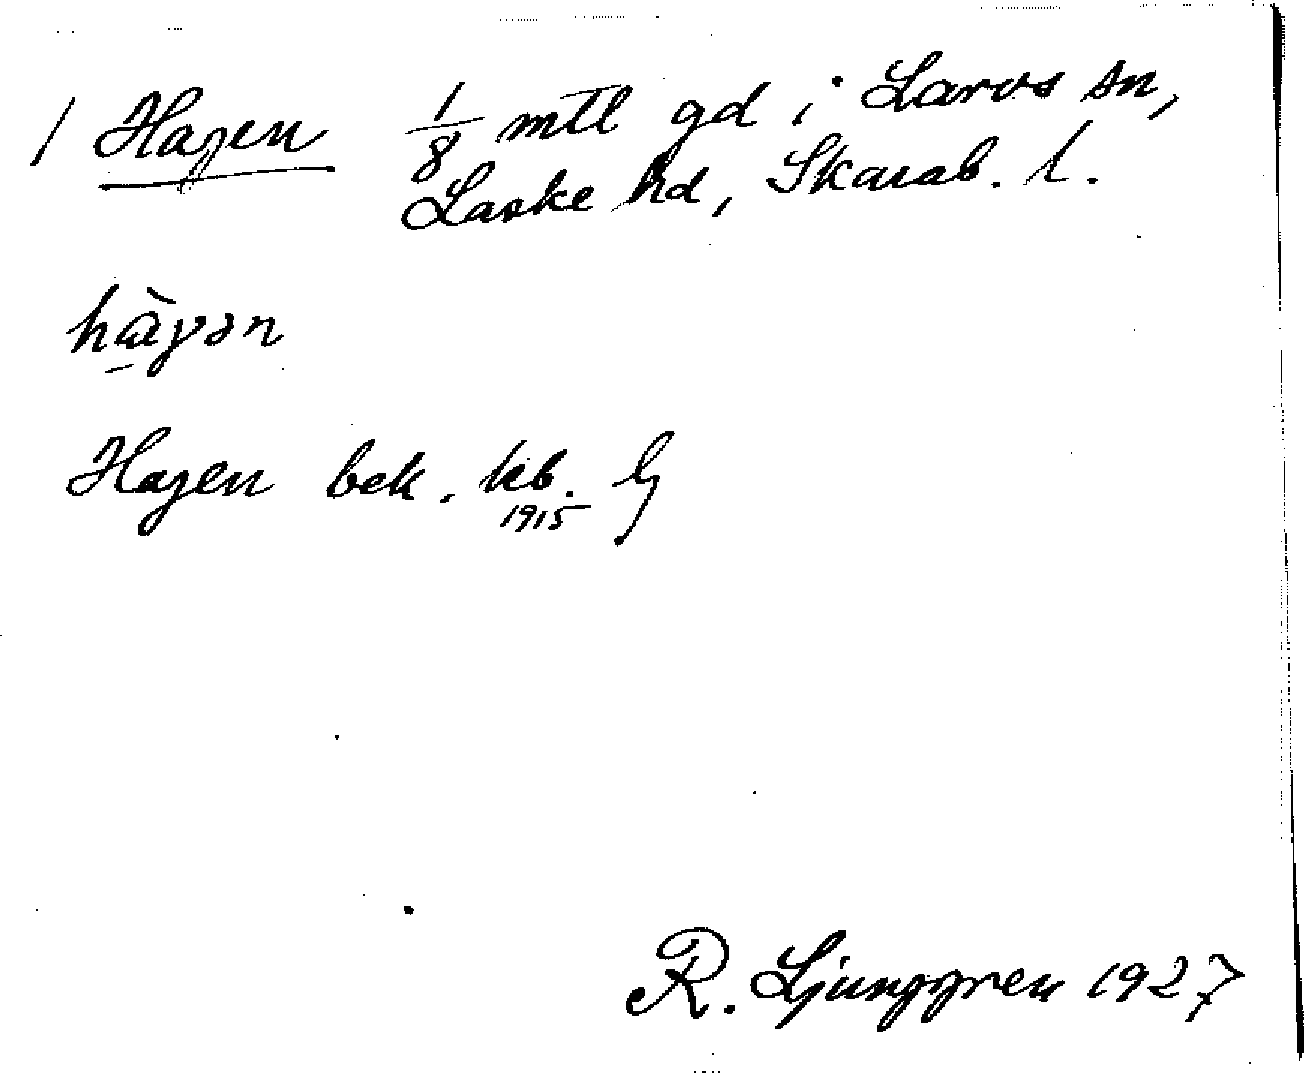 1 Hagen 1/8 mtl gd i Larvs sn,
Laske hd, Skarab. l.
hàyən
Hagen bek. kb.
1915
R. Ljunggren 1927